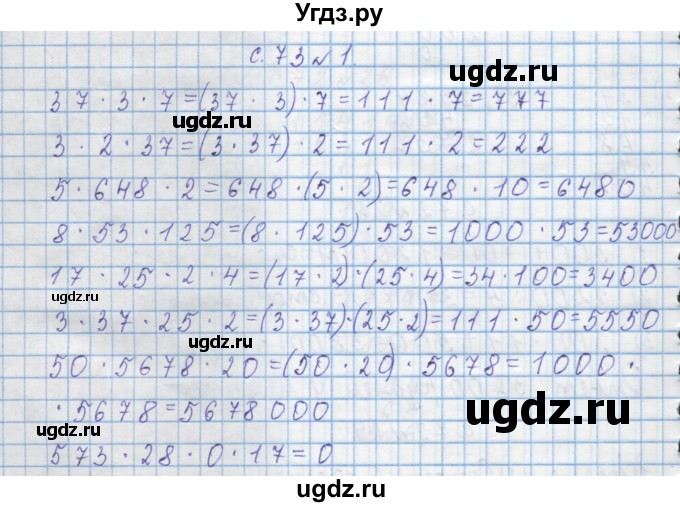 Угдз.ру
с. 73 № 1.
ugdz.ru
37 · 3 · 7 = (37 · 3) · 7 = 111 · 7 = 777
ugdz.ru
3 · 2 · 37 = (3 · 37) · 2 = 111 · 2 = 222
5 · 648 · 2 = 648 · (5 · 2) = 648 · 10 = 6480
8 · 53 · 125 = (8 · 125) · 53 = 1000 · 53 = 53000
ugdz.ru
17 · 25 · 2 · 4 = (17 · 2) · (25 · 4) = 34 · 100 = 3400
ugdz.ru
3 · 37 · 25 · 2 = (3 · 37) · (25 · 2) = 111 · 50 = 5550
ugdz.ru
50 · 5678 · 20 = (50 · 20) · 5678 = 1000 ·
· 5678 = 5678000
ugdz.ru
ugdz.ru
573 · 28 · 0 · 17 = 0
ugdz.ru